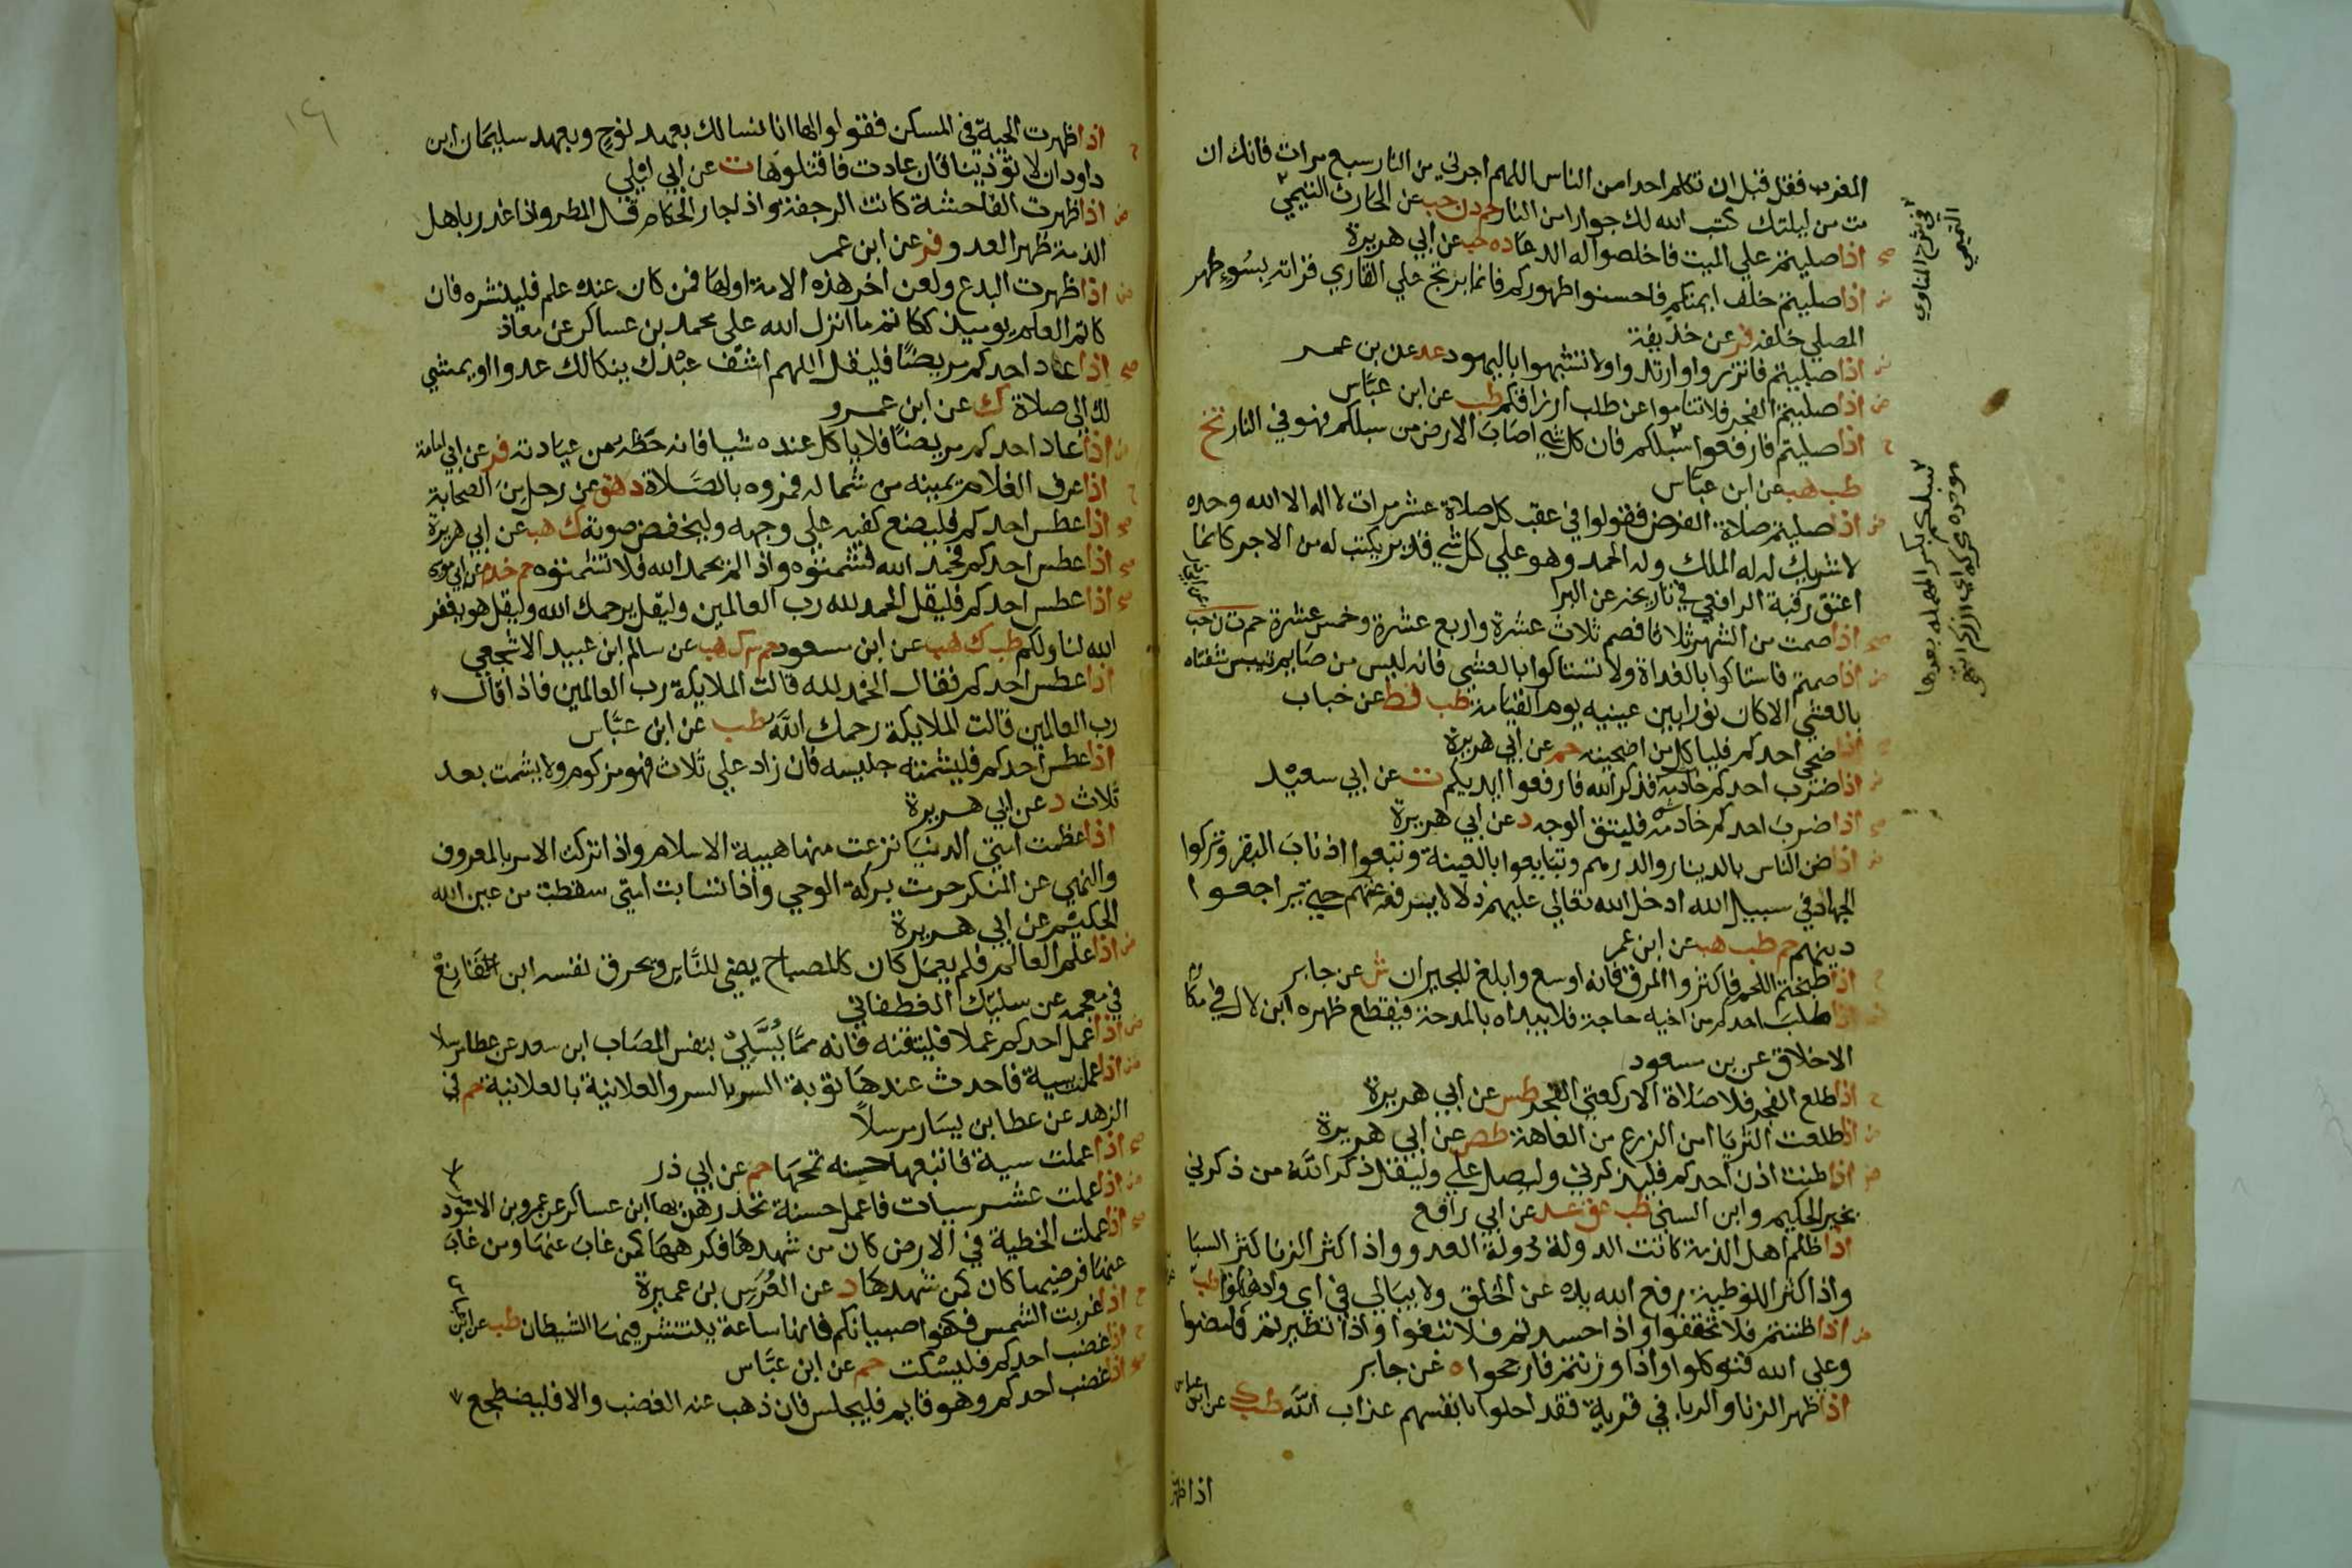 المغرب فقل قبل ان تكلم احدا من الناس اللهم اجرني من النار سبع مرات فانك ان
مت من ليلتك كتب الله لك جوارا من النار حم د ن حب عن الحارث التيمي
صح اذا صليتم علي الميت فاخلصوا له الدعا د ه حب عن ابي هريرة
ض اذا صليتم خلف ايمتكم فاحسنوا طهوركم فانما يرتج علي القاري قراته بسوء طهر
المصلي خلفه فر عن حذيفة
ض اذا صليتم فاتزروا وارتدوا ولا تشبهوا باليهود عد عن بن عمر
ض اذا صليتم الفجر فلا تناموا عن طلب ارزاقكم طب عن ابن عباس
ح اذا صليتم فارفعوا سبلكم فان كل شي اصاب الارض من سبلكم فهو في النار تخ
طب هب عن ابن عباس
ض اذا صليتم صلاة الفرض فقولوا في عقب كل صلاة عشر مرات لا اله الا الله وحده
لا شريك له له الملك وله الحمد وهو علي كل شي قدير يكتب له من الاجر كانما
اعتق رقبة الرافعي في تاريخه عن البرا
صح اذا صمت من الشهر ثلاثا فصم ثلاث عشرة واربع عشرة وخمس عشرة حم ت ن حب
ض اذا صمتم فاستاكوا بالغداة ولا تستاكوا بالعشي فانه ليس من صايم تيبس شفتاه
بالعشي الا كان نورا بين عينيه يوم القيامة طب قط عن خباب
اذا ضحي احدكم فلياكل من اضحيته حم عن ابي هريرة
ض اذا ضرب احدكم خادمه فذكر الله فارفعوا ايديكم ت عن ابي سعيد
صح اذا ضرب احدكم خادمه فليتق الوجه د عن ابي هريرة
ض اذا ضن الناس بالدينار والدرهم وتبايعوا بالعينة وتبعوا اذناب البقر وتركوا
الجهاد في سبيل الله ادخل الله تعالي عليهم ذلا لا يرفعه عنهم حتي يراجعوا
دينهم حم طب هب عن ابن عمر
ح اذا طبختم اللحم فاكثروا المرق فانه اوسع وابلغ للجيران ش عن جابر
اذا طلب احدكم من اخيه حاجة فلا يبداه بالمدحة فيقطع ظهره ابن لال في مكا
الاخلاق عن بن مسعود
ح اذا طلع الفجر فلا صلاة الا ركعتي الفجر طس عن ابي هريرة
ض اذا طلعت الثريا امن الزرع من العاهة طص عن ابي هريرة
ض اذا طنت اذن احدكم فليذكرني وليصل علي وليقل ذكر الله من ذكرني
بخير الحكيم وابن السني طب عق عد عن ابي رافع
اذا ظلم اهل الذمة كانت الدولة دولة العدو واذا كثر الزنا كثر السبا
واذا كثر اللوطية رفع الله يده عن الخلق ولا يبالي في اي واد هلكوا طب
ض اذا ظننتم فلا تحققوا واذا حسدتم فلا تبغوا واذا تطيرتم فامضوا
وعلي الله فتوكلوا واذا وزنتم فارجحوا ه عن جابر
اذا ظهر الزنا والربا في قرية فقد احلوا بانفسهم عذاب الله طب ك عن ابن عباس
اذا ظهر
في شرح المناوي
التميمي
سبلكم بكسر المهملة بعدها
موحدة محركة اي ازركم انتهي
١٦
اذا ظهرت الحية في المسكن فقولوا لها انا نسالك بعهد نوح وبعهد سليمان ابن
داود ان لا تؤذينا فان عادت فاقتلوها ت عن ابي ليلي
ض اذا ظهرت الفاحشة كانت الرجفة واذا جار الحكام قل المطر واذا غدر باهل
الذمة ظهر العدو فر عن ابن عمر
ض اذا ظهرت البدع ولعن اخر هذه الامة اولها فمن كان عنده علم فلينشره فان
كاتم العلم يوميذ ككاتم ما انزل الله علي محمد بن عساكر عن معاذ
صح اذا عاد احدكم مريضا فليقل اللهم اشف عبدك ينكا لك عدوا او يمشي
لك الي صلاة ك عن ابن عمرو
ض اذا عاد احدكم مريضا فلا ياكل عنده شيا فانه حظه من عيادته فر عن ابي امامة
ح اذا عرف الغلام يمينه من شماله فمروه بالصلاة د هق عن رجل من الصحابة
صح اذا عطس احدكم فليضع كفيه علي وجهه وليخفض صوته ك هب عن ابي هريرة
صح اذا عطس احدكم فحمد الله فشمتوه واذا لم يحمد الله فلا تشمتوه حم خد م عن ابي موسي
صح اذا عطس احدكم فليقل الحمد لله رب العالمين وليقل يرحمك الله وليقل هو يغفر
الله لنا ولكم طب ك هب عن ابن مسعود حم ٣ ك هب عن سالم ابن عبيد الاشجعي
اذا عطس احدكم فقال الحمد لله قالت الملايكة رب العالمين فاذا قال
رب العالمين قالت الملايكة رحمك الله طب عن ابن عباس
اذا عطس احدكم فليشمته جليسه فان زاد علي ثلاث فهو مزكوم ولا يشمت بعد
ثلاث د عن ابي هريرة
اذا عظمت امتي الدنيا نزعت منها هيبة الاسلام واذا تركت الامر بالمعروف
والنهي عن المنكر حرمت بركة الوحي واذا تسابت امتي سقطت من عين الله
الحكيم عن ابي هريرة
ض اذا علم العالم فلم يعمل كان كالمصباح يضي للناس ويحرق نفسه ابن القانع
في معجمه عن سليك الغطفاني
ض اذا عمل احدكم عملا فليتقنه فانه مما يسلي بنفس المصاب ابن سعد عن عطا مرسلا
ض اذا عملت سية فاحدث عندها توبة السر بالسر والعلانية بالعلانية حم في
الزهد عن عطا بن يسار مرسلا
صح اذا عملت سية فاتبعها حسنه تمحها حم عن ابي ذر
ض اذا عملت عشر سيات فاعمل حسنة تحدرهن بها ابن عساكر عن عمرو بن الاسود
صح اذا عملت الخطية في الارض كان من شهدها فكرهها كمن غاب عنها ومن غاب
عنها فرضيها كان كمن شهدها د عن العرس بن عميرة
ح اذا غربت الشمس فكفوا صبيانكم فانها ساعة ينتشر فيها الشيطان طب عن ابن
ح اذا غضب احدكم فليسكت حم عن ابن عباس
صح اذا غضب احدكم وهو قايم فليجلس فان ذهب عنه الغضب والا فليضطجع